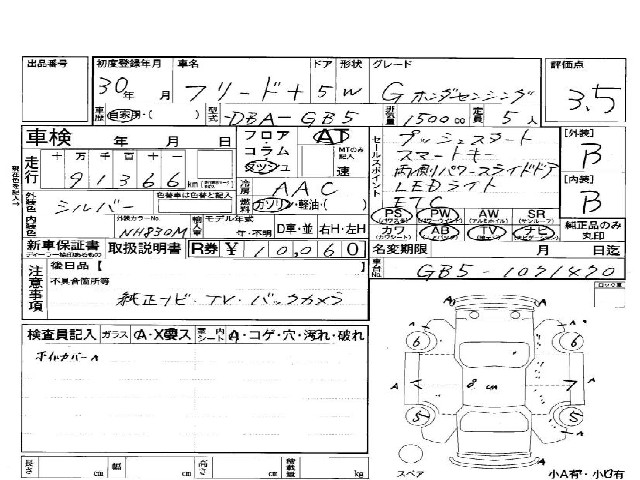 出品番号 初度登録年月 車名 ドア 形状 グレード 評価点
30年 月 フリード+ 5 W Gホンダセンシング 3.5
車歴 自家用・( ) 型式 DBA-GB5 排気量 1500cc 定員 5人
車検 年 月 日 フロア・コラム AT セールスポイント プッシュスタート [外装]
走行 十 万 千 百 十 一 ダッシュ MTのみ記入 速 スマートキー B
91366 km 冷房 AAC 両側パワースライドドア [内装]
外装色 シルバー 色替車は色替と記入 燃料 ガソリン・軽油・( ) LEDライト B
ETC
内装色 外装カラーNo. NH830M 輸入車 モデル年式 年・不明 D車・並 右H・左H PS PW AW SR 純正品のみ丸印
カワ AB TV ナビ
新車保証書 取扱説明書 R券 ¥10,060 名変期限 月 日迄
注意事項 後日品【 車台No. GB5-1021420
不具合箇所等
純正ナビ・TV・バックカメラ
検査員記入 ガラス A・X要ス 室内シート A・コゲ・穴・汚れ・破れ
ホイルカバーA
6 6
A A A A
8cm 7
5 5
長さ cm 幅 cm 高さ cm 積載量 kg
スペア 小A有・小B有